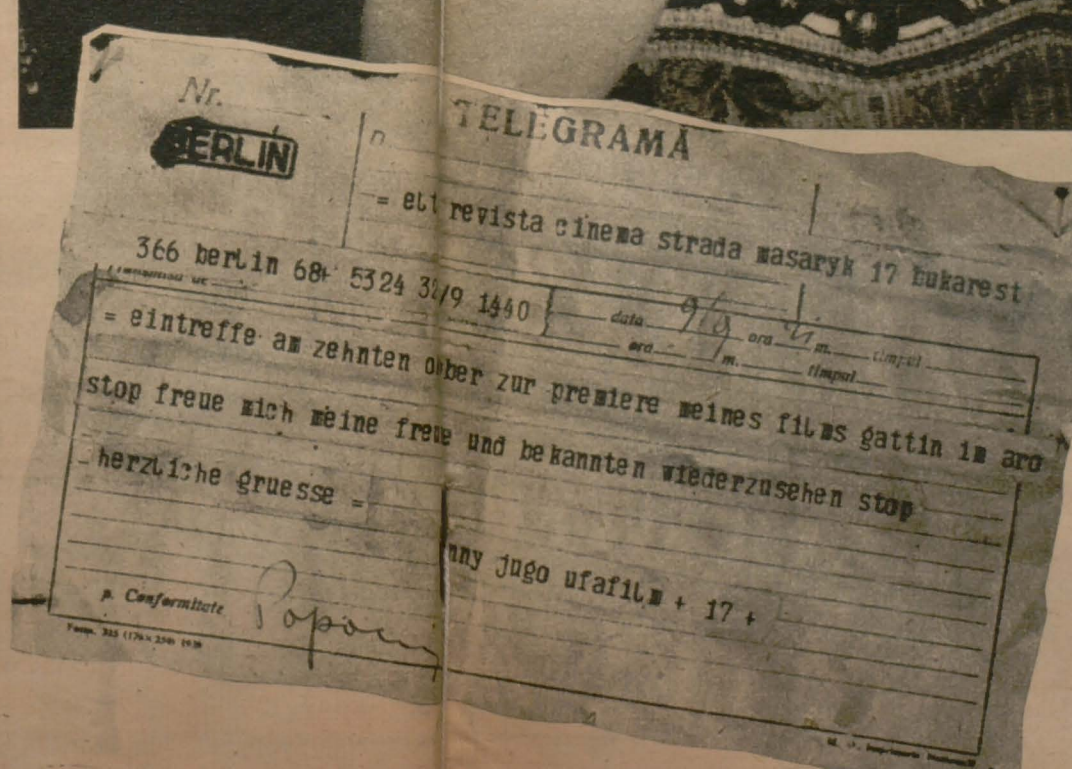 Nr.
TELEGRAMĂ
BERLIN
= revista cinema strada masaryk 17 bukarest
366 berlin 68+ 5324 /9 1440
data 9/9 ora m. timpul
ora m. timpul
= eintreffe am zehnten zur premiere meines films gattin im aro
stop freue mich meine und bekannten wiederzusehen stop
herzliche gruesse =
nny jugo ufafilm + 17 +
p. Conformitate